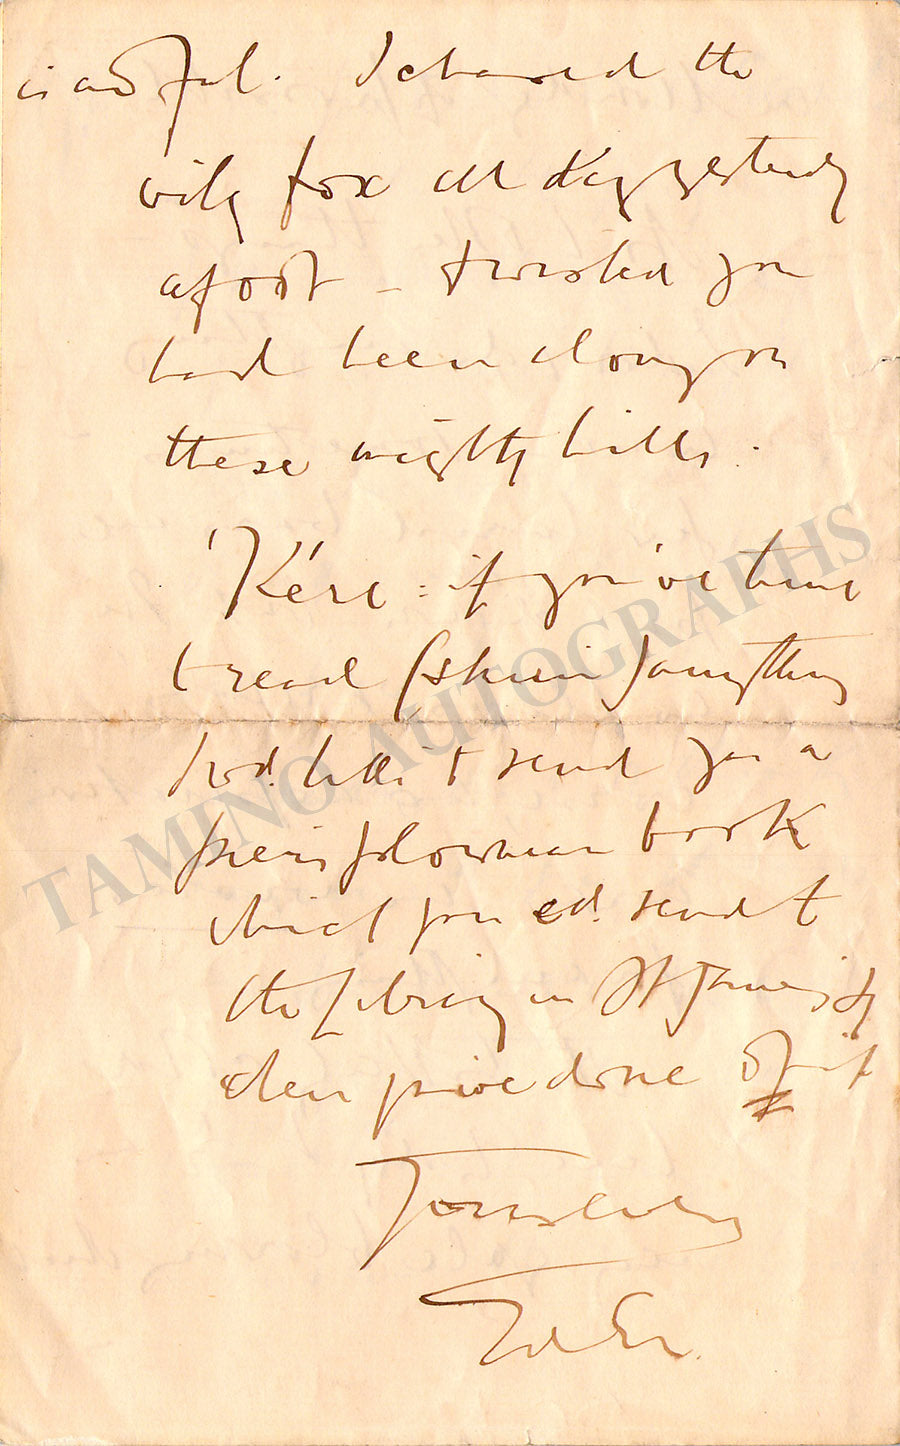 is awful. I chased the
wily fox all day yesterday
afoot – & wished you
had been along on
these mighty hills.
'K'ere : if you've time
t read (skim) anything
I wd. like t send you a
Piers plowman book
which you cd. send t
the Library in St James's Sq
when you've done of it
Yours ever
Ed. E.
TAMINO AUTOGRAPHS